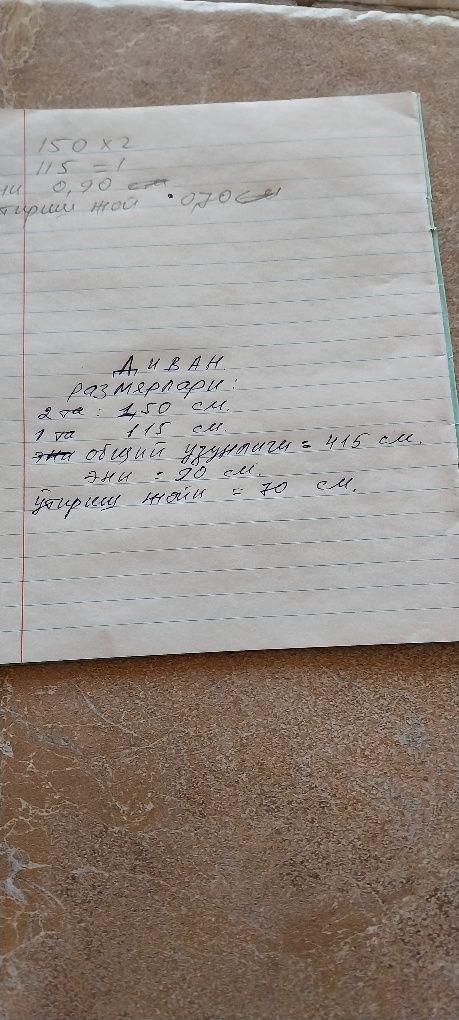 150 x 2
115 = 1
ни 0,90 см
тириш жой • 0,70 см
ДИВАН
размерлари:
2 та : 150 см.
1 та 115 см.
эни общий узунлиги = 415 см.
эни = 90 см.
ўтириш жойи = 70 см.